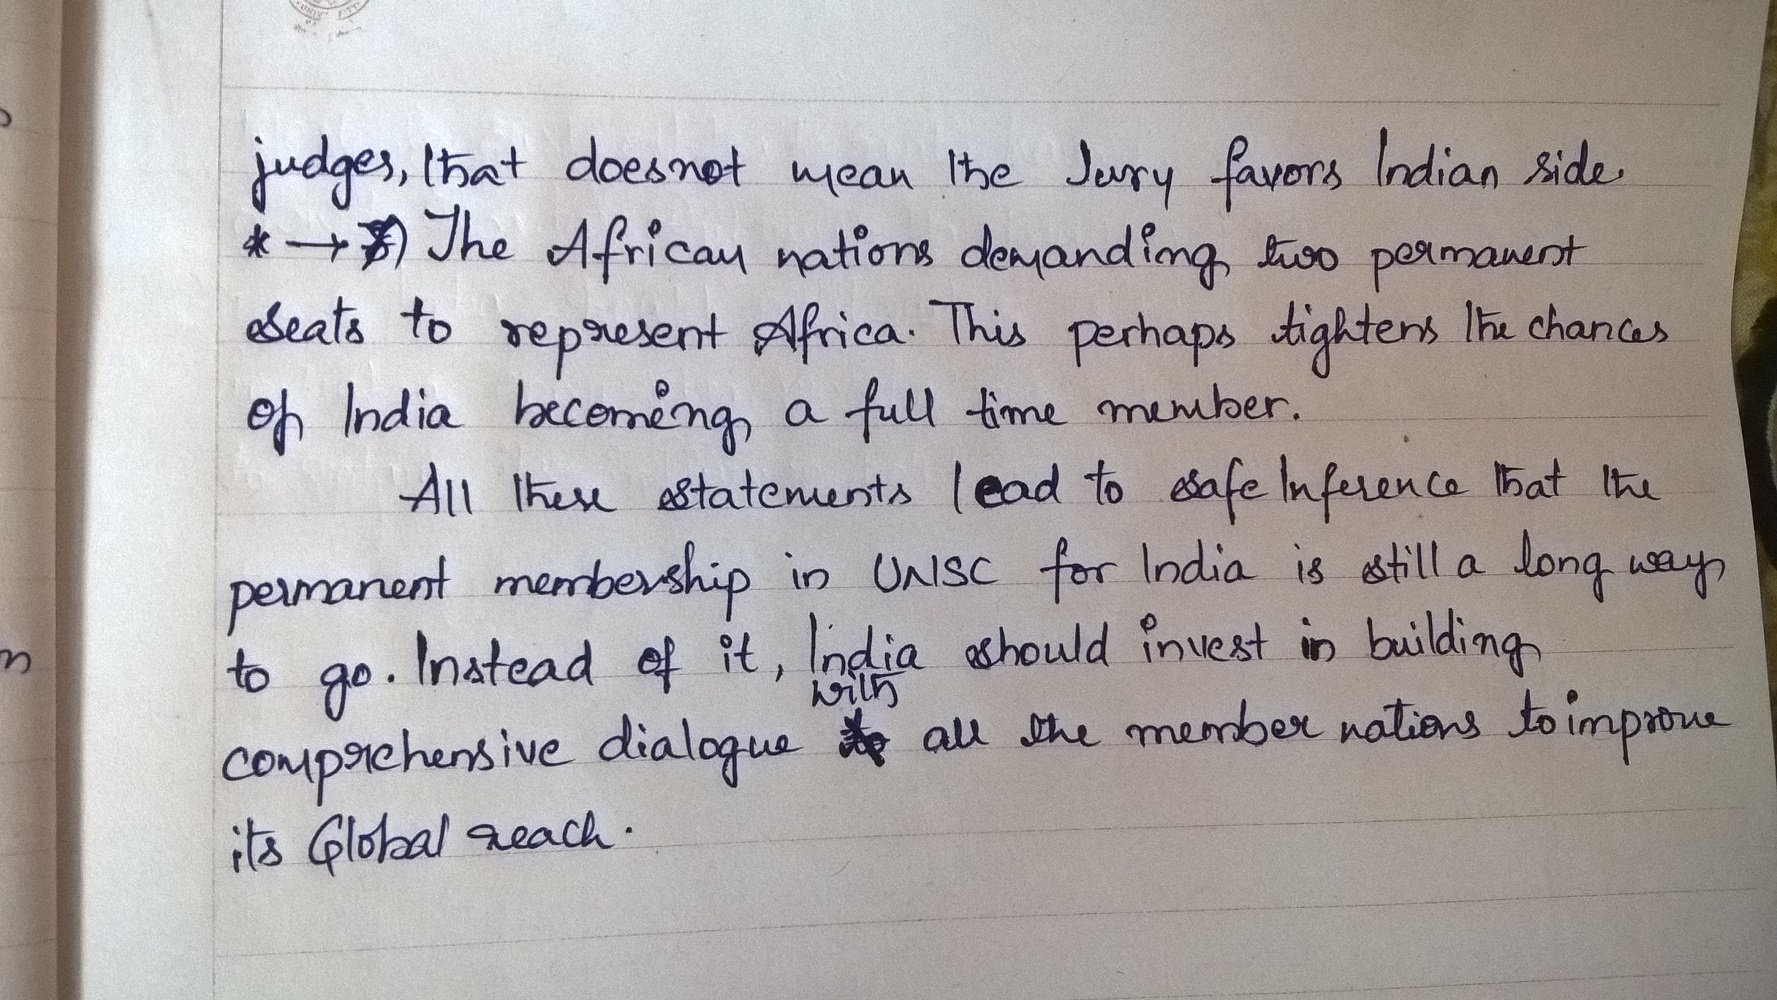 judges, that doesnot mean the Jury favors Indian side
* → The African nations demanding two permanent
seats to represent Africa. This perhaps tightens the chances
of India becoming a full time member.
All these statements lead to safe Inference that the
permanent membership in UNSC for India is still a long way
to go. Instead of it, India should invest in building
with
comprehensive dialogue all the member nations to improve
its Global reach.